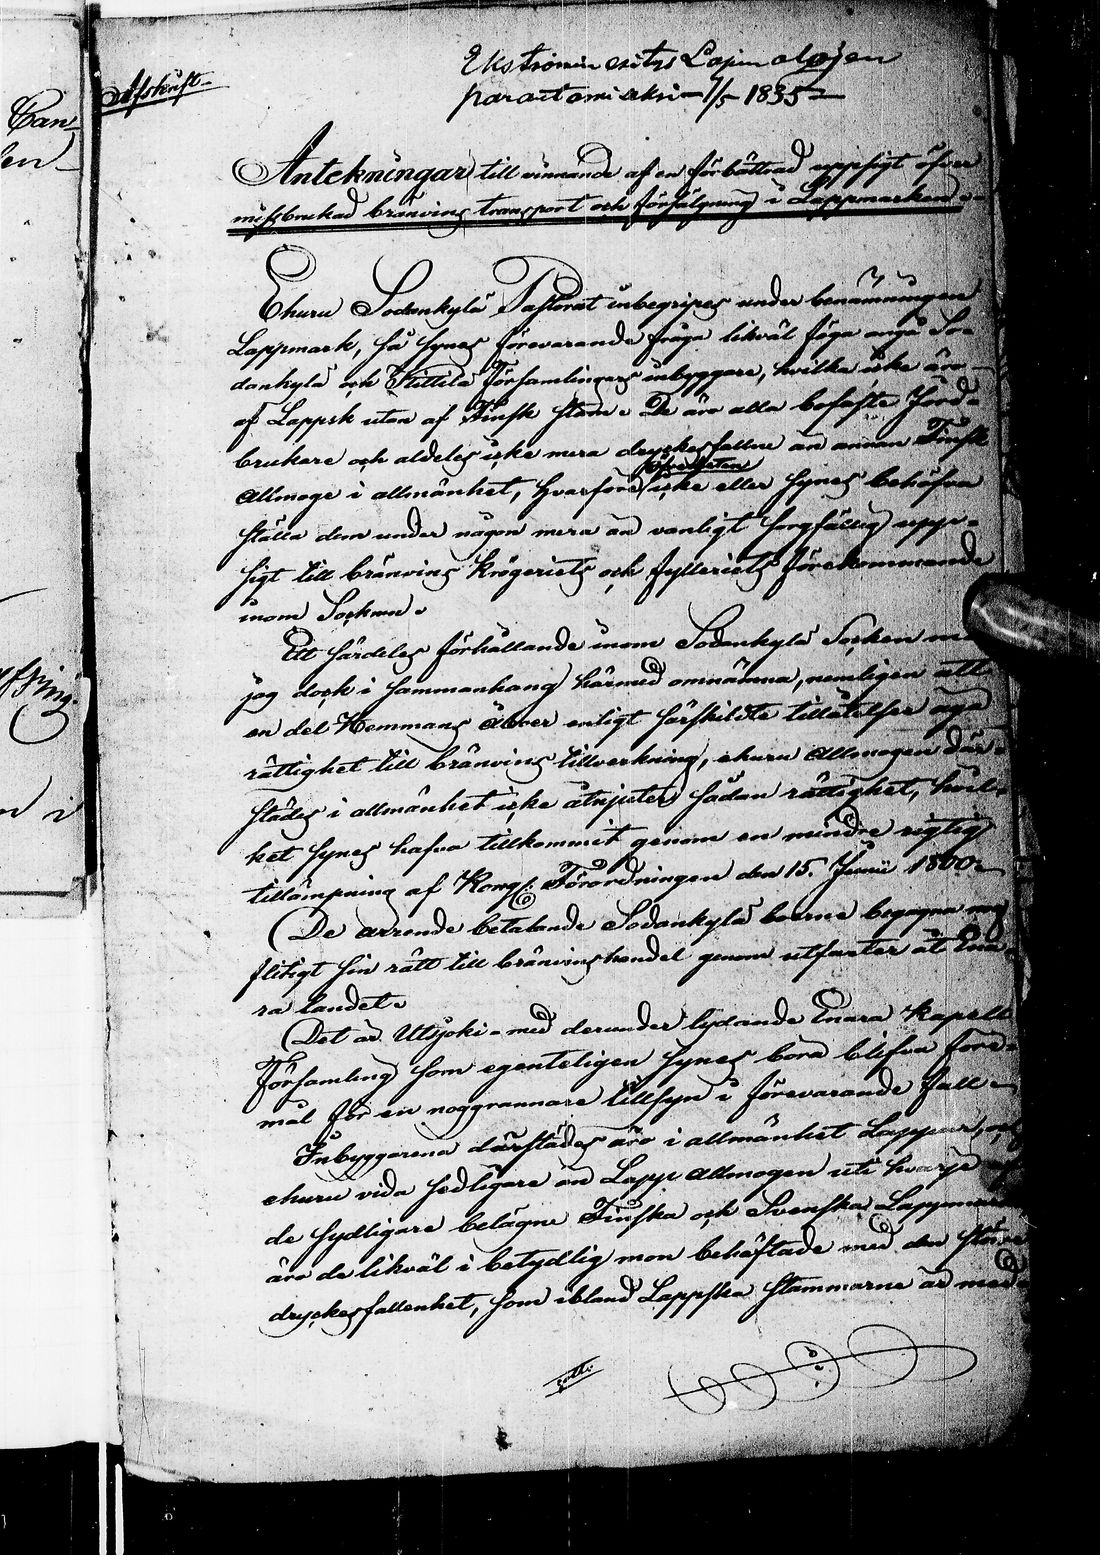 Afskrift
Ekströmin esitys Lapin olojen
parantamiseksi 7/5 1835
Antekningar till vinnande af en förbättrad uppsigt öfver
missbrukad bränvins transport och försäljning i Lappmarken.
Ehuru Sodankylä Pastorat inbegripes under benämningen
Lappmark, så synes förevarande fråga likväl föga angå So-
dankylä och Kittilä Församlingars inbyggare, hvilka icke äro
af Lappsk utan af Finsk stam. De äro alla bofaste Jord-
brukare och aldeles icke mera dryckesfallne än annan Finsk
allmoge i allmänhet, hvarföre icke eller synes behöfva
ställa dem under någon mera än vanligt sorgfällig upp-
sigt till bränvins krögeriets och fylleriets förekommande
inom Socknen.
Ett särdeles förhållande inom Sodankylä Socken
jag dock i sammanhang härmed omnämna, nemligen att
en del Hemmans åboer enligt särskildte tillåtelser äga
rättighet till bränvins tillverkning, ehuru allmogen där-
städes i allmänhet icke åtnjuter sådan rättighet, hvil-
ket synes hafva tillkommit genom en mindre rigtig
tillämpning af Kongl. Förordningen den 15. Junii 1800.
De arrende betalande Sodankylä boerne begagna nog
flitigt sin rätt till bränvinshandel genom utfarter åt Ena-
ra landet.
Det är Utsjoki med derunder lydande Enara Kapell
Församling som egenteligen synes böra blifva före-
mål för en noggrannare tillsyn i förevarande fall.
Inbyggarena därstädes äro i allmänhet Lappar, och
ehuru vida sedligare än Lapp allmogen uti hvarje af
de sydligare belägne Finska och Svenska Lappmarker
äro de likväl i betydlig mon behäftade med den större
dryckesfallenhet, som ibland Lappska stammarne är med